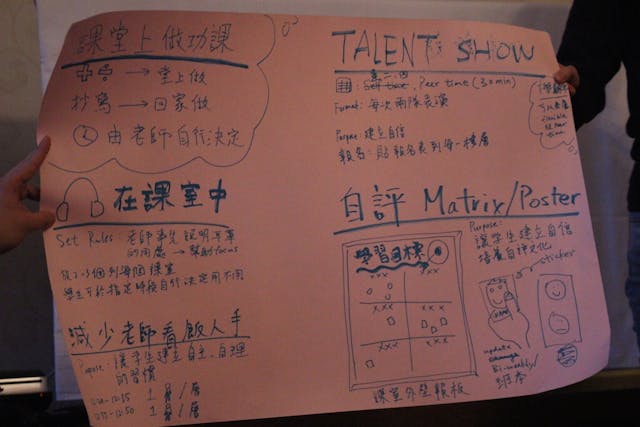 課堂上做功課
→ 堂上做
抄寫 → 回家做
由老師自行決定
在課室中
Set Rules: 老師事先說明耳筒
的用處 → 幫助focus
個到每個課室
學生可於指定時段自行決定用不用
減少老師看飯人手
Purpose: 讓學生建立自主、自理
的習慣
12:50 1 /層
TALENT SHOW
Self time, Peer time (30min)
Format: 每次兩隊表演
Purpose: 建立自信
報名: 貼報名表到每一樓層
flexible
自評 Matrix/Poster
學習目標
xxx xxx
xxx xxx
xxx xxx
課室外壁報板
Purpose:
讓學生建立自信
培養自評文化
sticker
update
Bi-weekly/